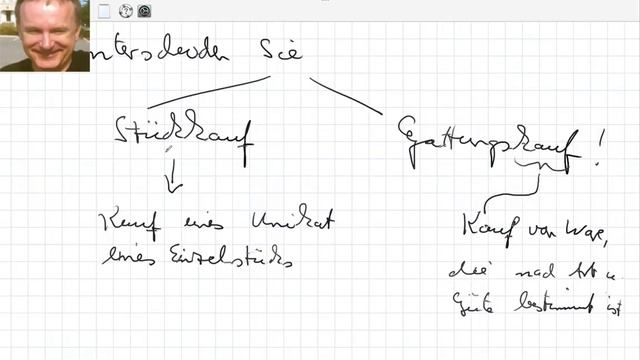 unterscheiden Sie
Stückkauf
Gattungskauf!
Kauf eines Unikat
eines Einzelstücks
Kauf von Ware,
die nach Art u.
Güte bestimmt ist